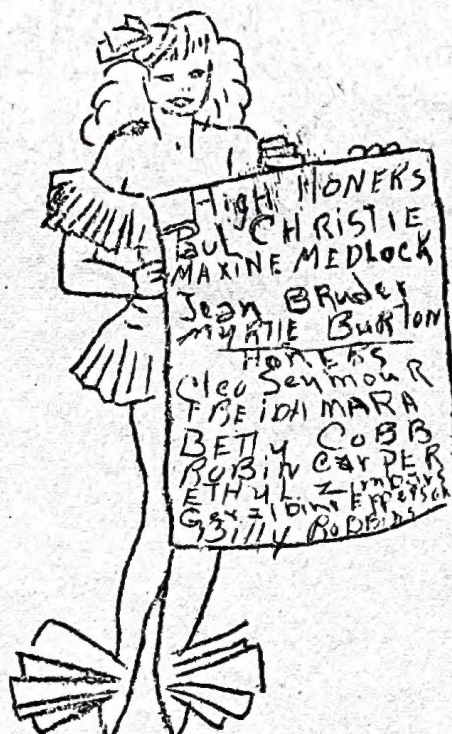 HigH HONERS
PauL CHRiSTIE
MAXINE MEDLOCK
Jean BRuder
MYRTIE BURTON
HONERS
Cleo SeymouR
MARA
BETTY COBB
ROBiN CarPER
ETHYL
Billy RoBBins